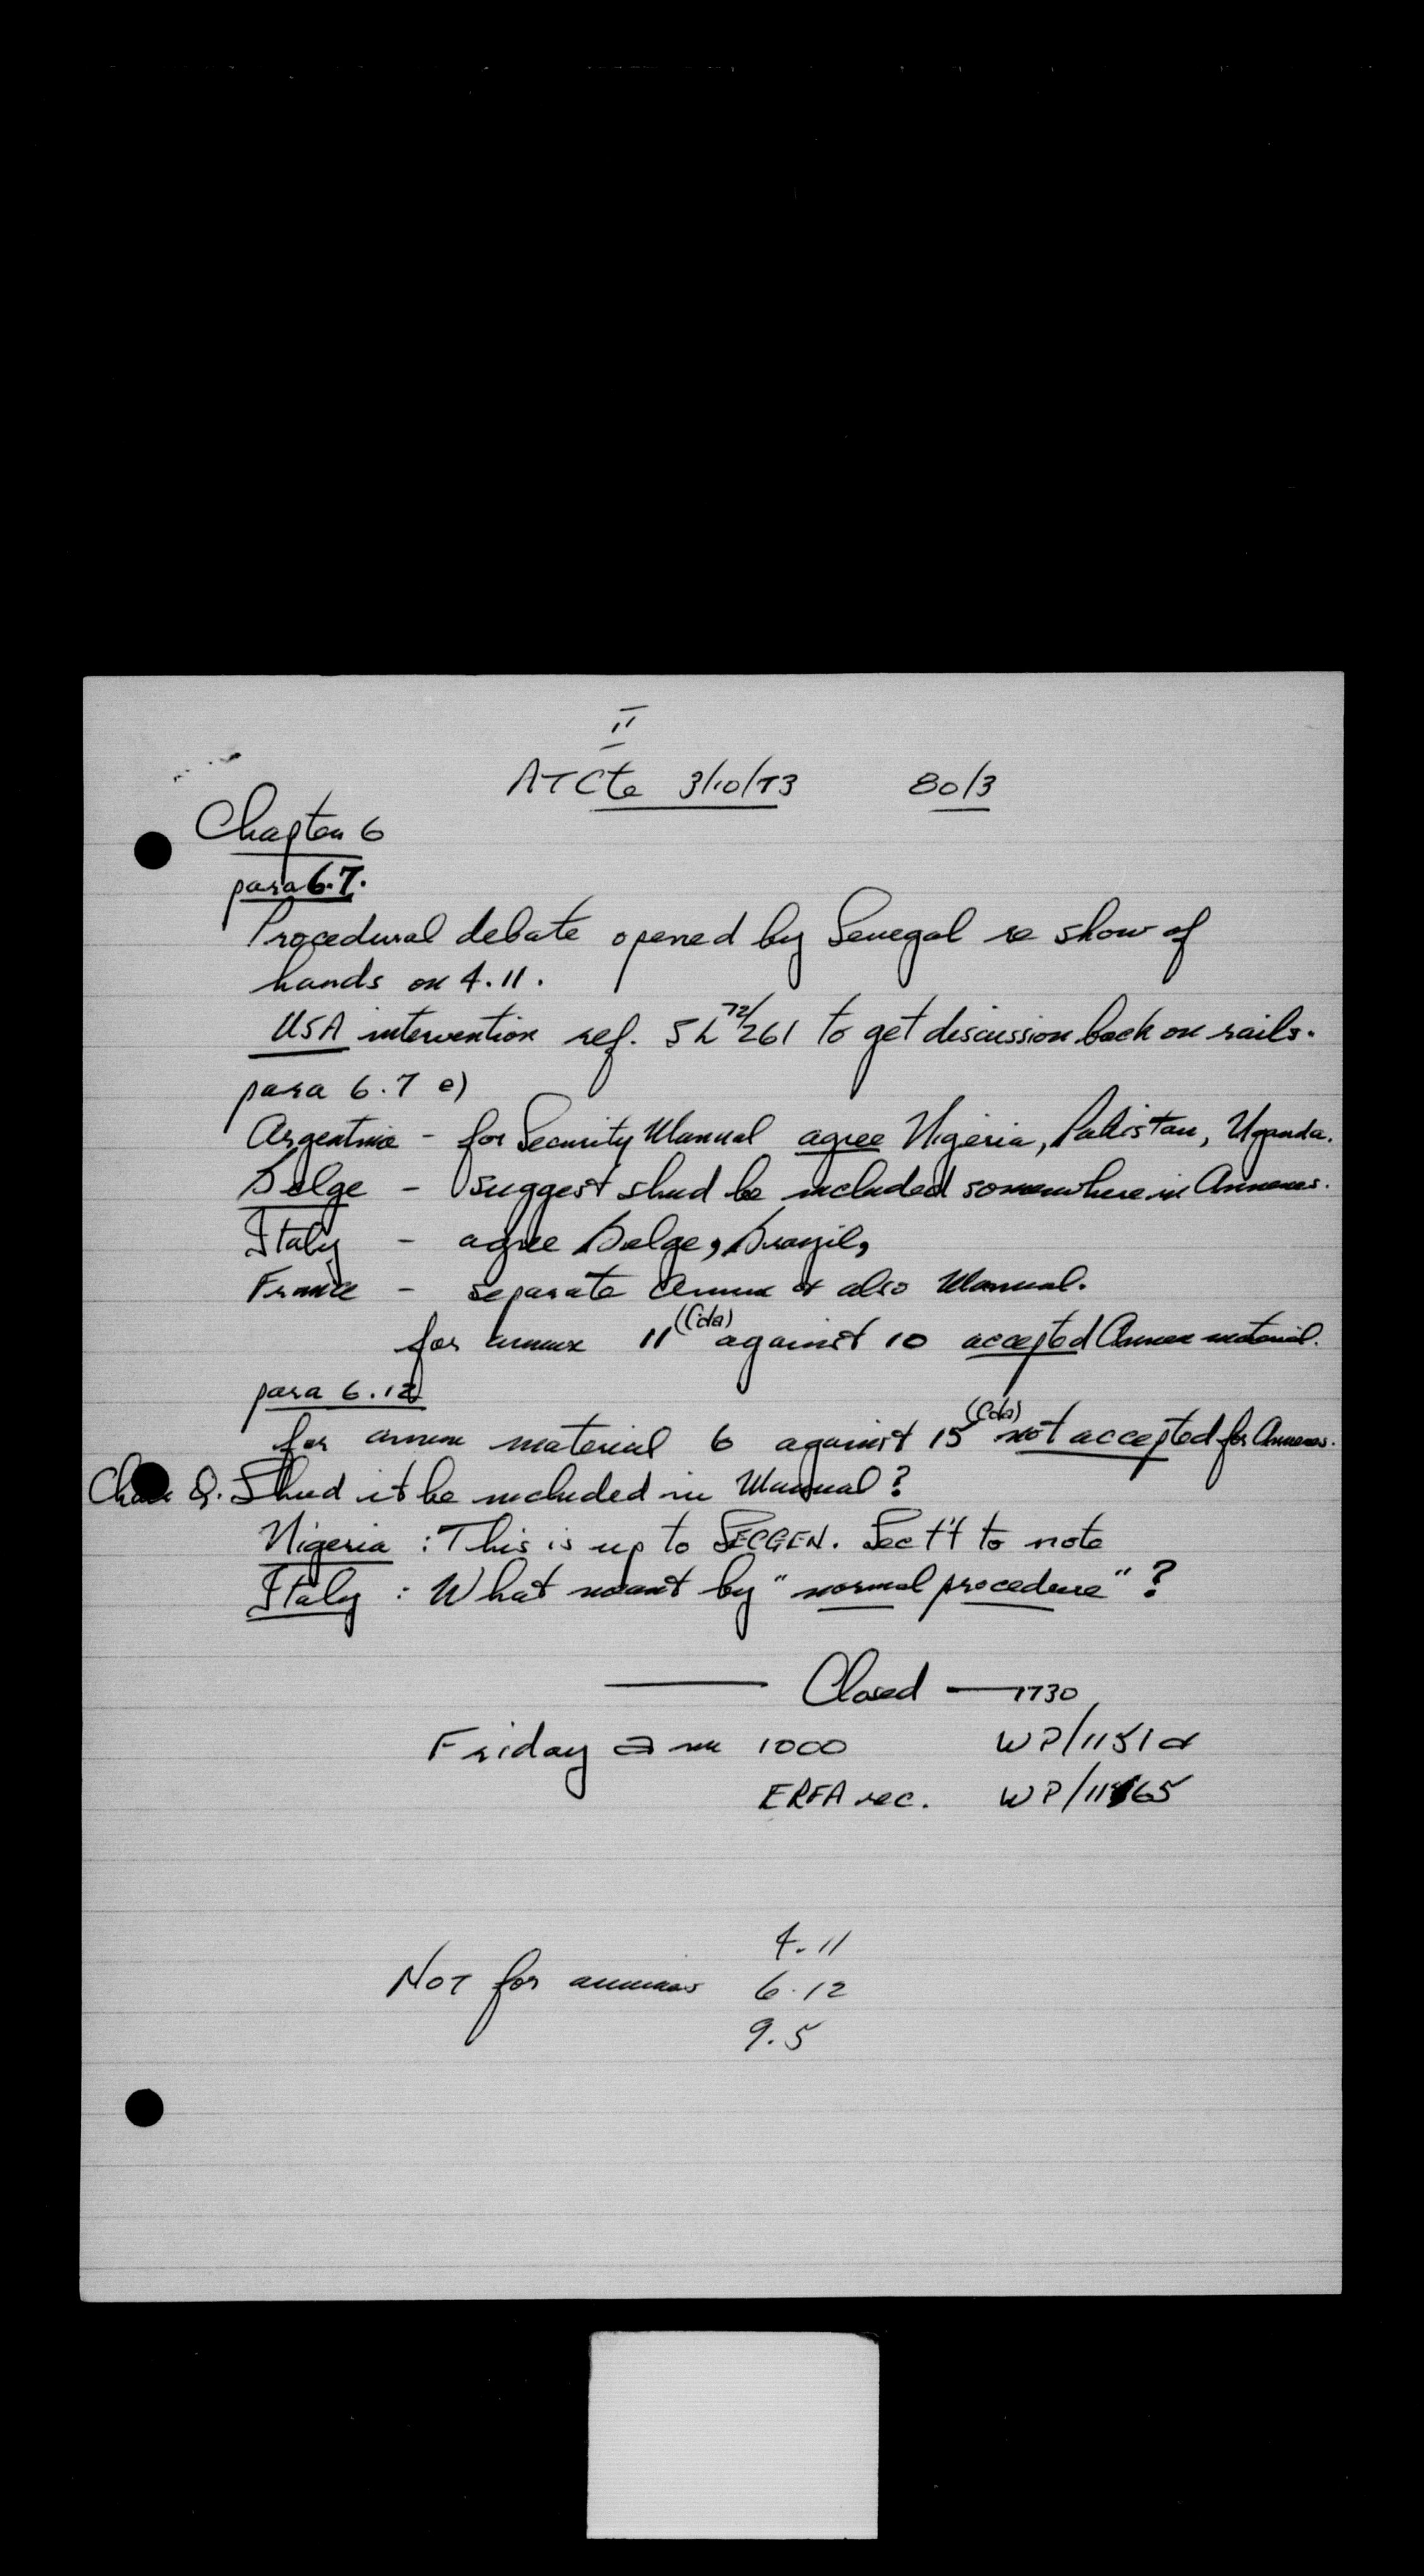 II
ATCte 3/10/73 80/3
Chapter 6
para 6.7.
Procedural debate opened by Senegal re show of
hands on 4.11.
USA intervention ref. SL 72/261 to get discussion back on rails.
para 6.7 e)
Argentina - for Security Manual agree Nigeria, Pakistan, Uganda.
Belge - suggest shud be included somewhere in Annexes.
Italy - agree Belge, Brazil,
France - separate annex & also Manual.
for annex 11 (Cda) against 10 accepted Annex material.
para 6.12
for annex material 6 against 15 (Cda) not accepted for Annexes.
Chair Q. Shud it be included in Manual?
Nigeria : This is up to SECGEN. Sec't't to note
Italy : What meant by "normal procedure"?
Closed - 1730
Friday am 1000 WP/1151 &
ERFA rec. WP/1165
4.11
Not for annexes 6.12
9.5